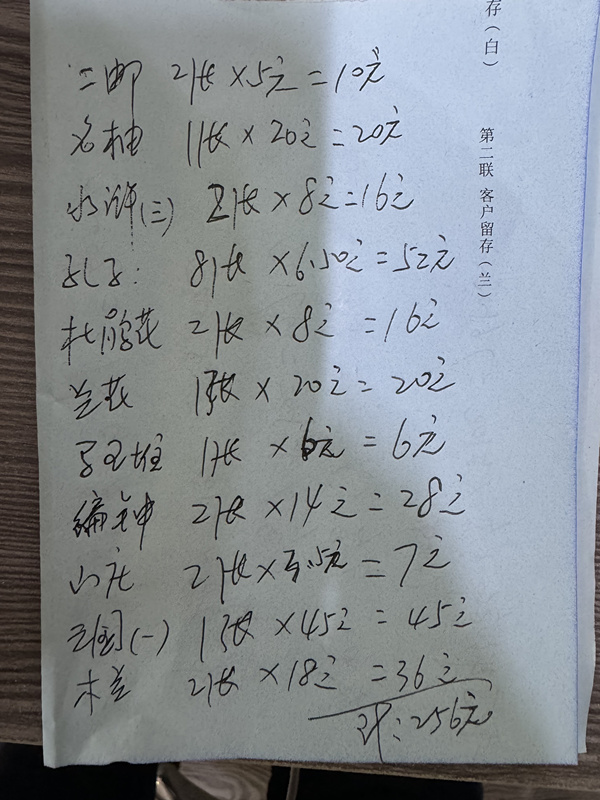 二邮 2张×5元=10元
名柚 1张×20元=20元
水浒(三) 2张×8元=16元
孔子: 8张×6.50元=52元
杜鹃花 2张×8元=16元
兰花 1张×20元=20元
马王堆 1张×6元=6元
编钟 2张×14元=28元
山庄 2张×3.5元=7元
三国(一) 1张×45元=45元
木兰 2张×18元=36元
计:256元
存(白)
第二联 客户留存(兰)